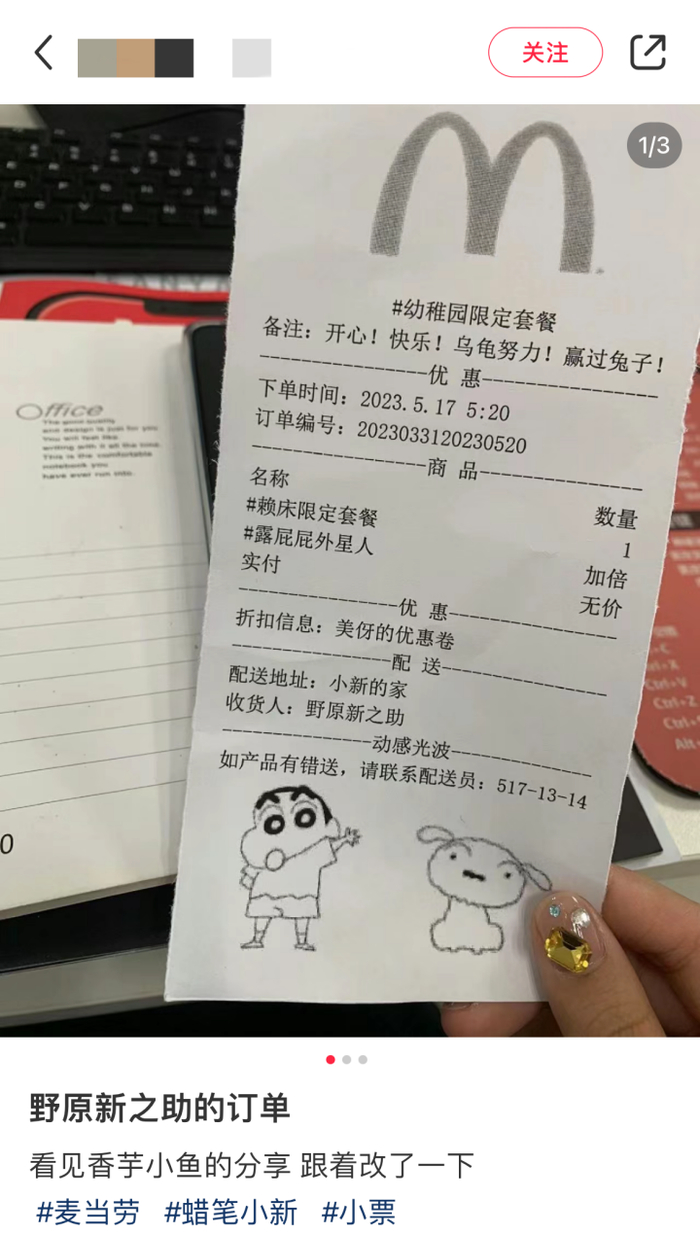 关注
1/3
#幼稚园限定套餐
备注：开心！快乐！乌龟努力！赢过兔子！
----------------优 惠----------------
下单时间：2023.5.17 5:20
订单编号：2023033120230520
----------------商 品----------------
名称 数量
#赖床限定套餐 1
#露屁屁外星人 加倍
实付 无价
----------------优 惠----------------
折扣信息：美伢的优惠卷
----------------配 送----------------
配送地址：小新的家
收货人：野原新之助
--------------动感光波--------------
如产品有错送，请联系配送员：517-13-14
Office
The good quality
and design is just for you
You will feel like
writing with it all the time.
This is the comfortable
notebook you
have ever run into.
0
Ctrl+V
Ctrl+Z
Ctrl+
Alt+
野原新之助的订单
看见香芋小鱼的分享 跟着改了一下
#麦当劳 #蜡笔小新 #小票